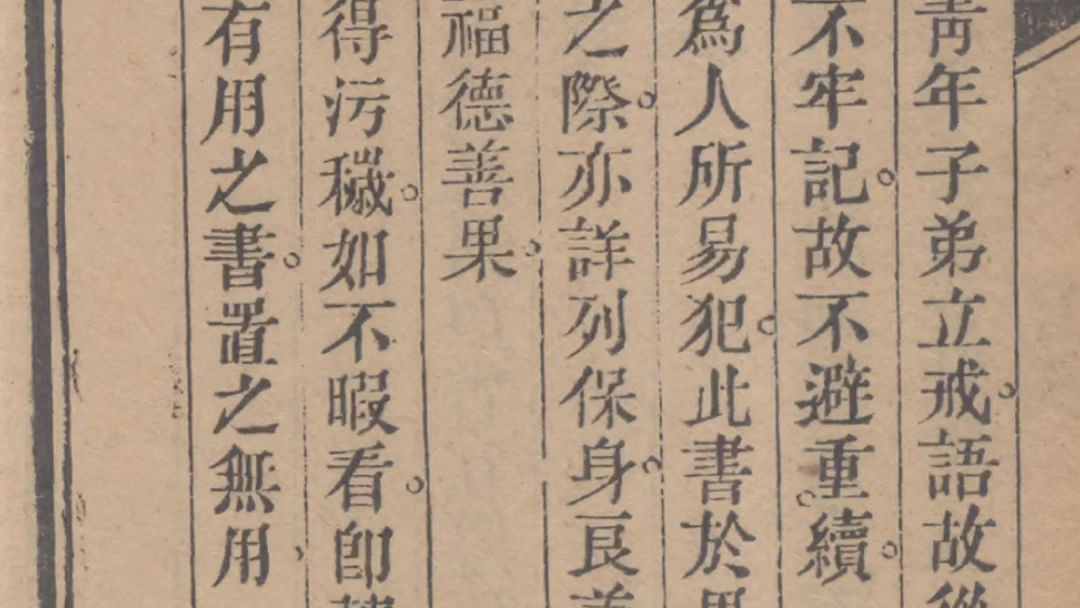 青年子弟立戒。語故從
不牢記。故不避重。續。
爲人所易犯。此書於男
之際。亦詳列保身。良善
福德善果。
得污穢。如不暇看。卽轉
有用之書。置之無用